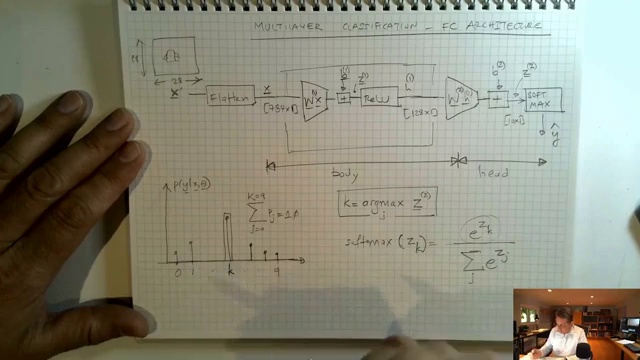 MULTILAYER CLASSIFICATION - FC ARCHITECTURE
28
28
x
Flatten
x
[784x1]
W^(1) x
b^(1)
+
z^(1)
ReLU
h^(1)
[128x1]
W^(2) h^(1)
b^(2)
+
z^(2)
[10x1]
SOFT
MAX
ŷ
body
head
p(y|x,θ)
K=9
Σ P_j = 1.0
j=0
0 1 . k 9
k = argmax z^(2)
j
softmax (z_k) = e^{z_k}
Σ e^{z_j}
j